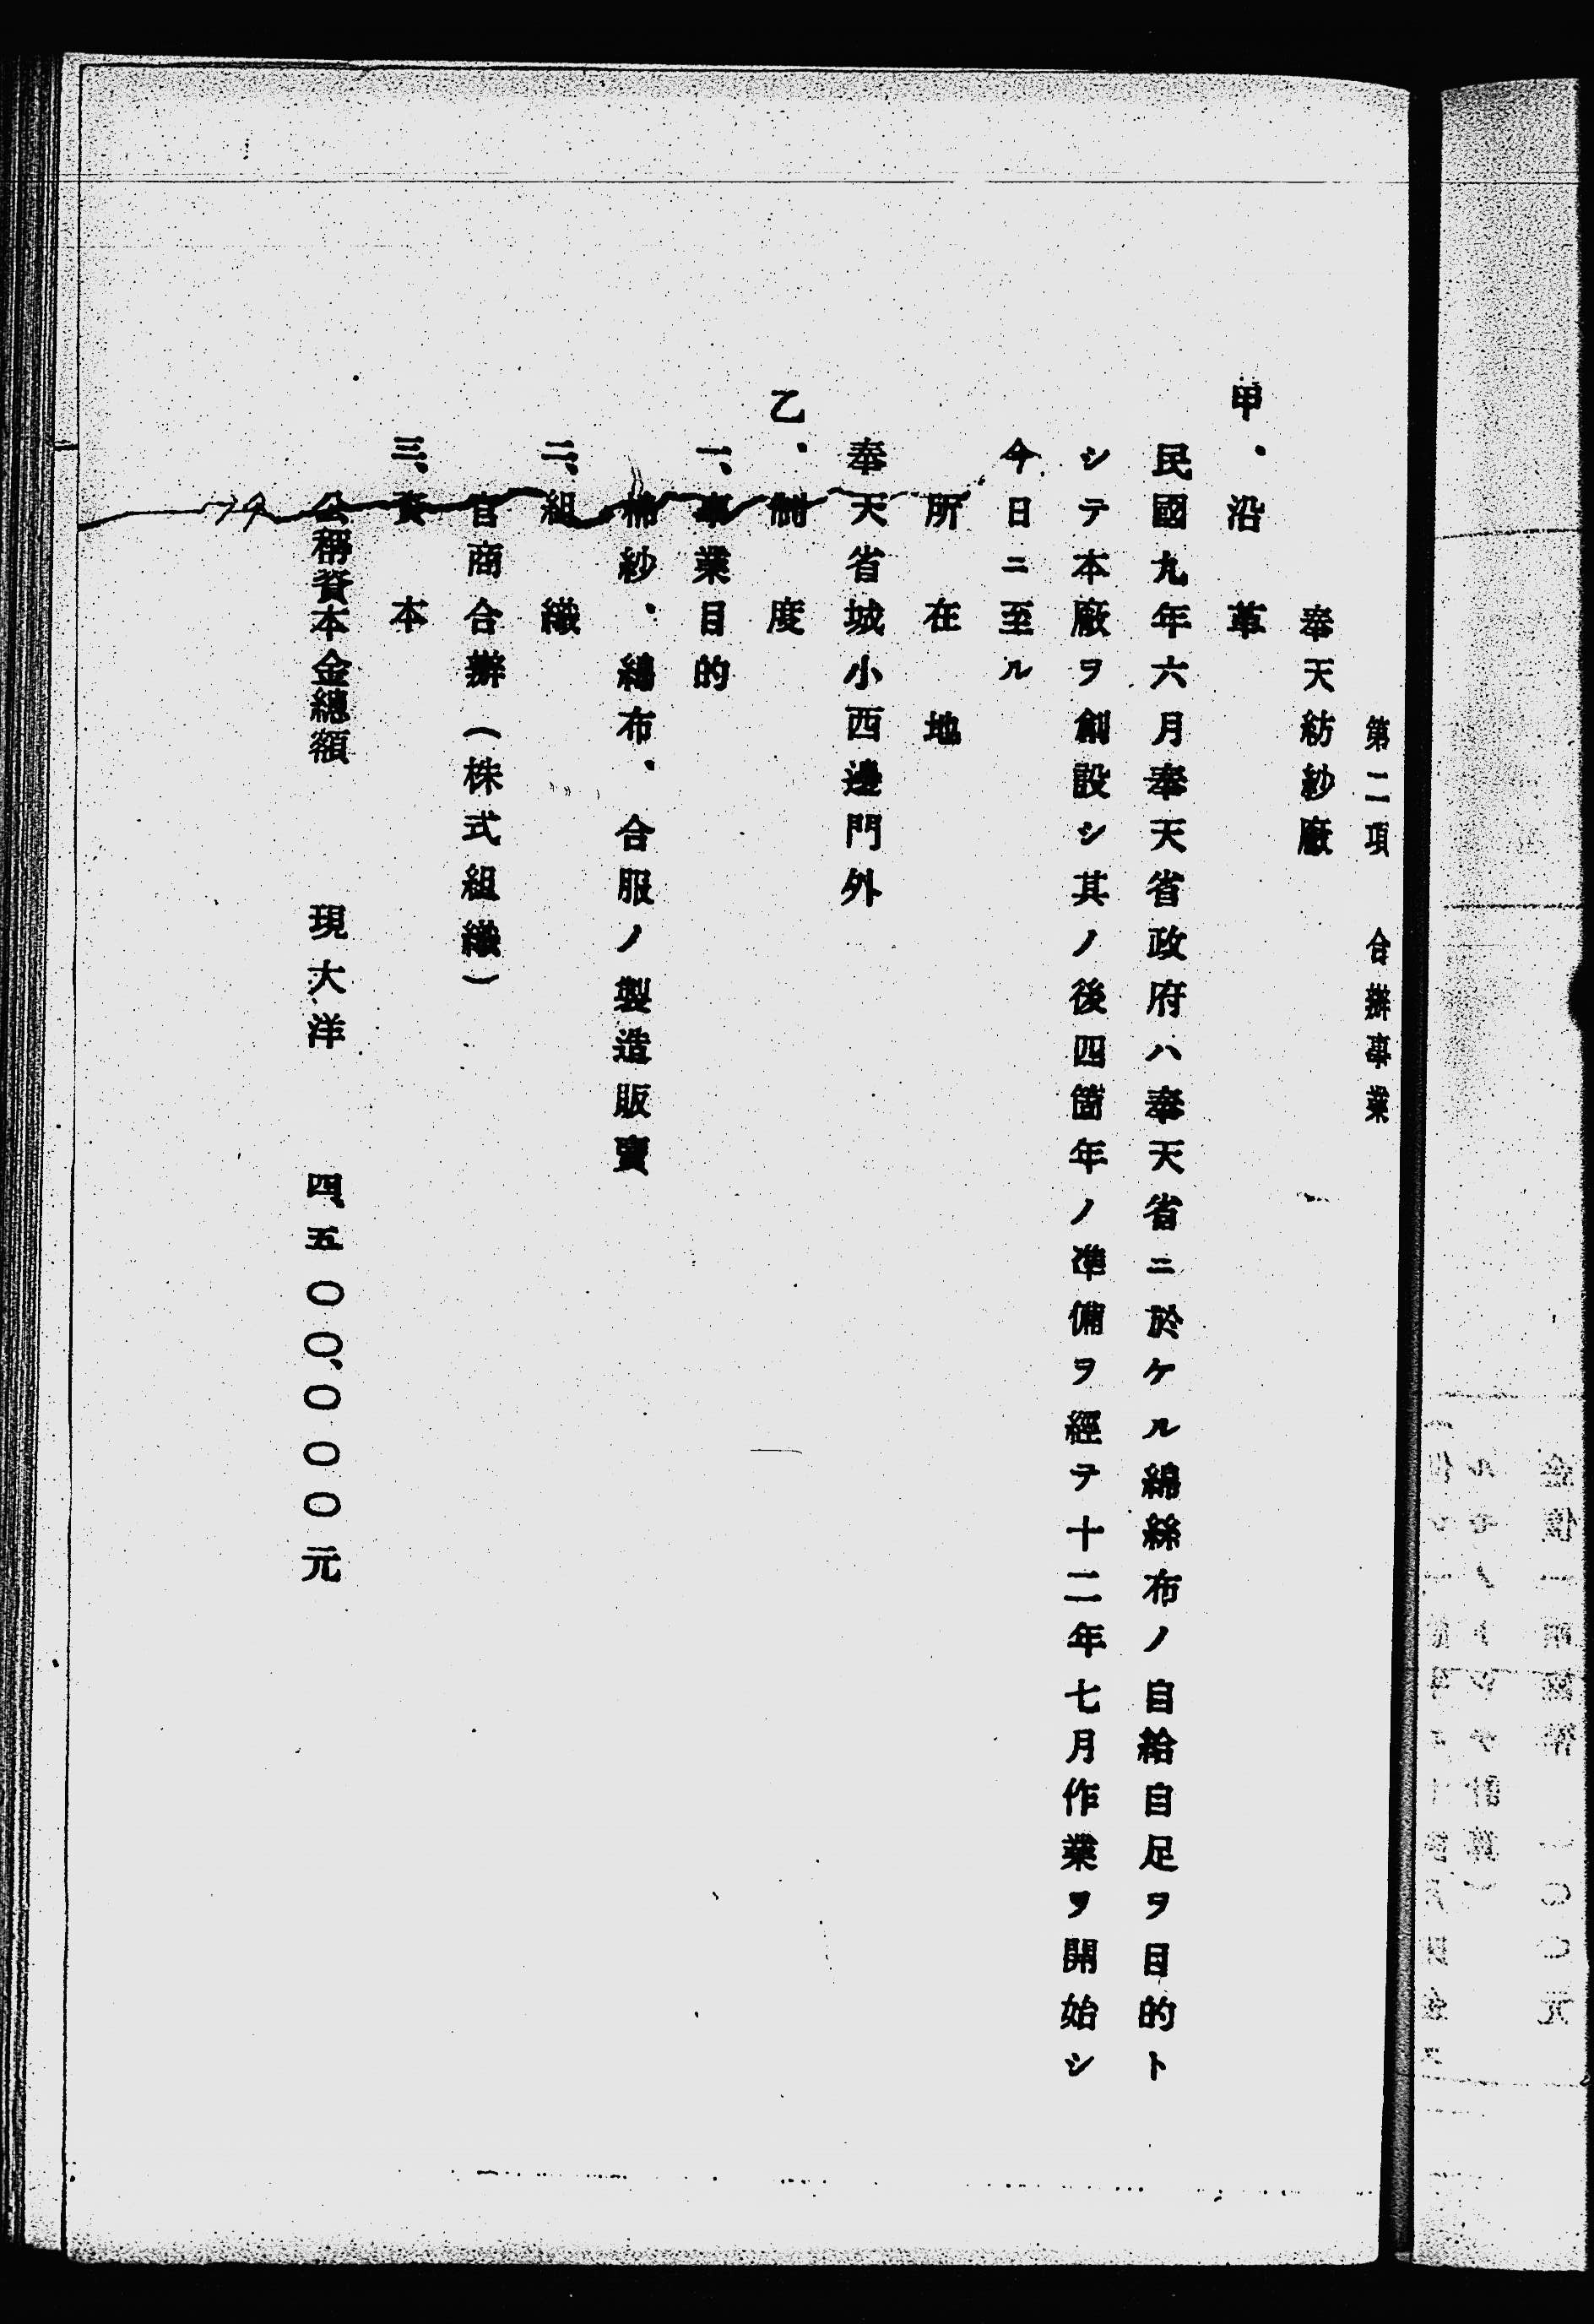 第二項　合辦事業
奉天紡紗廠
甲、沿革
民國九年六月奉天省政府ハ奉天省ニ於ケル綿絲布ノ自給自足ヲ目的ト
シテ本廠ヲ創設シ其ノ後四箇年ノ準備ヲ經テ十二年七月作業ヲ開始シ
今日ニ至ル
所在地
奉天省城小西邊門外
乙、制度
一、事業目的
棉紗、綿布、合服ノ製造販賣
二、組織
官商合辦（株式組織）
三、資本
公稱資本金總額　現大洋　四、五〇〇、〇〇〇元